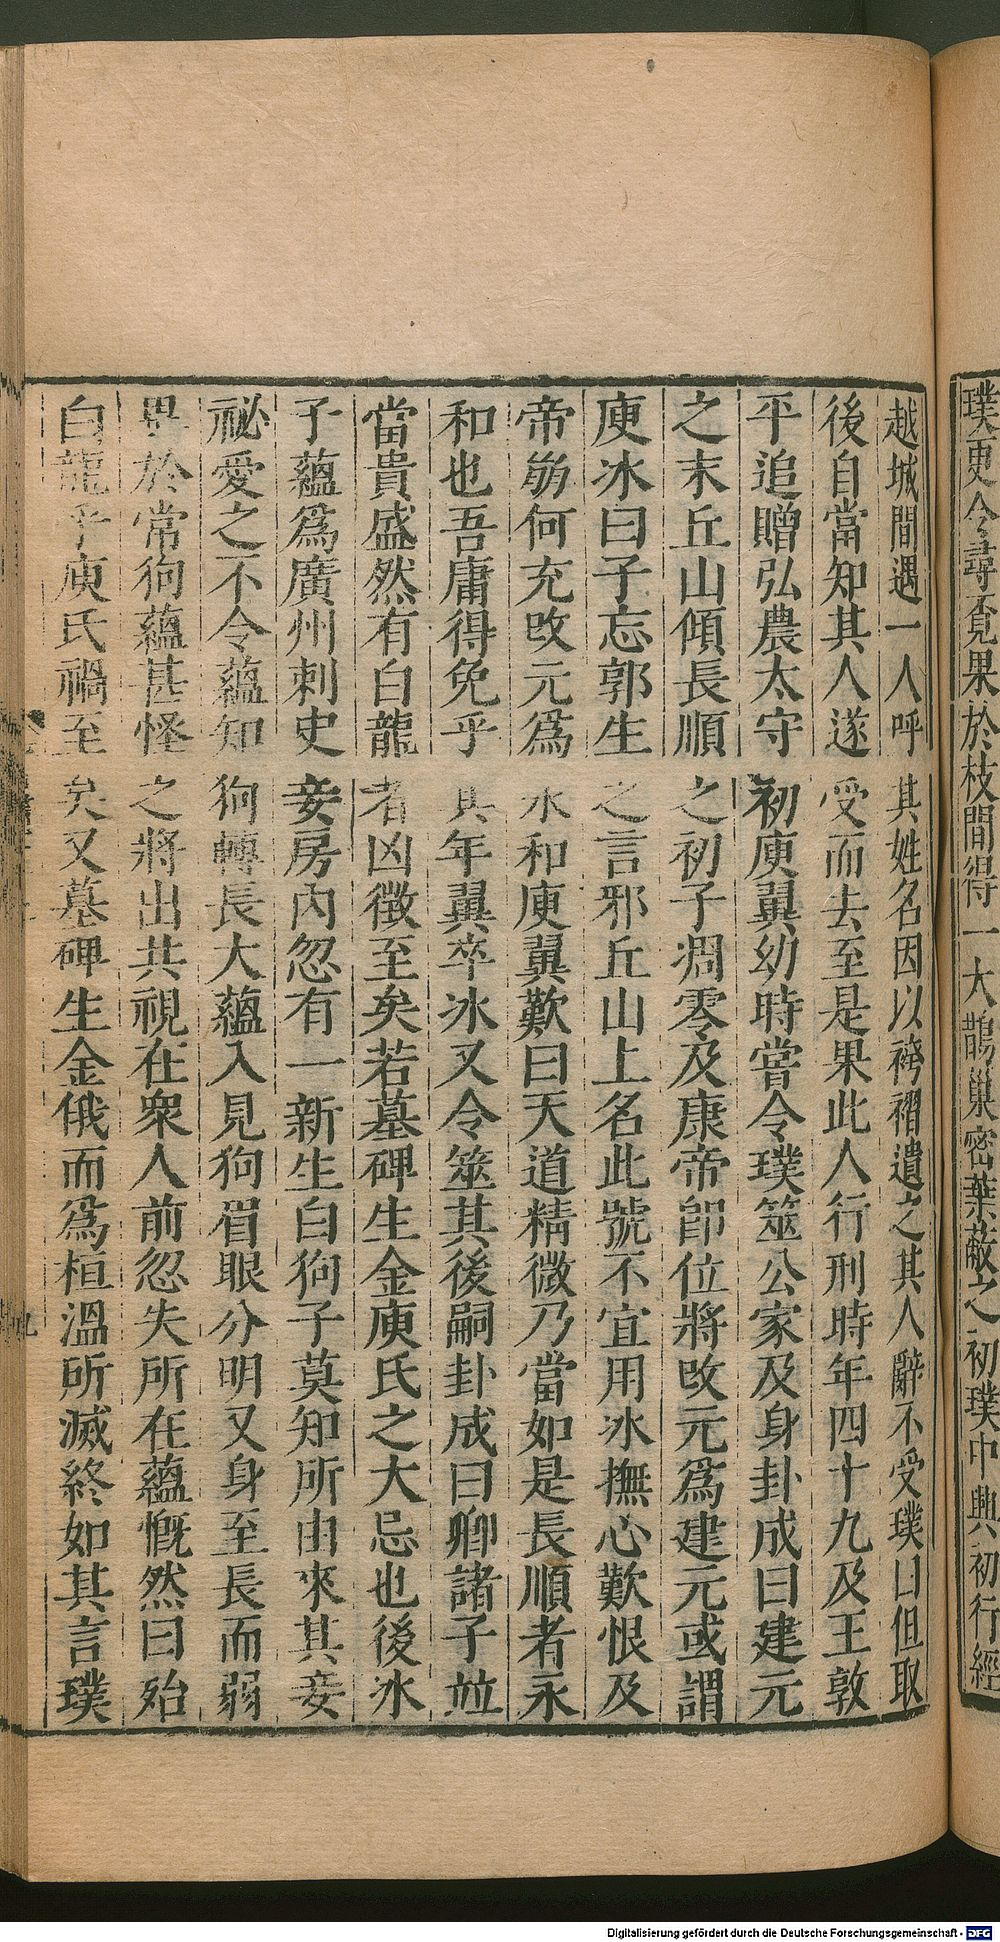 璞更令尋覓果於枝間得一大鵲巢密葉蔽之初璞中興初行經
越城間遇一人呼其姓名因以袴褶遺之其人辭不受璞曰但取
後自當知其人遂受而去至是果此人行刑時年四十九及王敦
平追贈弘農太守初庾翼幼時嘗令璞筮公家及身卦成曰建元
之末丘山傾長順之初子凋零及康帝即位將改元爲建元或謂
庾冰曰子忘郭生之言邪丘山上名此號不宜用冰撫心歎恨及
帝崩何充改元爲永和庾翼歎曰天道精微乃當如是長順者永
和也吾庸得免乎其年翼卒冰又令筮其後嗣卦成曰卿諸子並
當貴盛然有白龍者凶徵至矣若墓碑生金庾氏之大忌也後冰
子蘊爲廣州刺史妾房內忽有一新生白狗子莫知所由來其妾
祕愛之不令蘊知狗轉長大蘊入見狗眉眼分明又身至長而弱
異於常狗蘊甚怪之將出共視在眾人前忽失所在蘊慨然曰殆
白龍乎庾氏禍至矣又墓碑生金俄而爲桓溫所滅終如其言璞
Digitalisierung gefördert durch die Deutsche Forschungsgemeinschaft - DFG